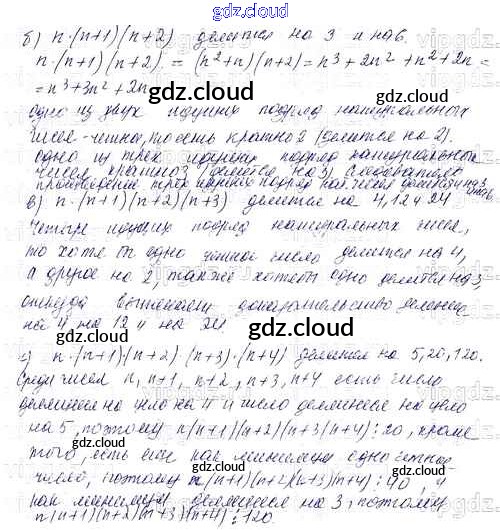 gdz.cloud
б) n·(n+1)(n+2) делится на 3 и на 6.
n·(n+1)(n+2) = (n²+n)(n+2) = n³+2n²+n²+2n =
= n³+3n²+2n
gdz.cloud
одно из двух идущих подряд натуральных
чисел - четно, то есть кратно 2 (делится на 2).
одно из трех идущих подряд натуральных
чисел кратно 3 (делится на 3) следовательно
произведение трех идущих подряд нат. чисел делится на 3
в) n·(n+1)(n+2)(n+3) делится на 4, 12 и 24
Четыре идущих подряд натуральных числа,
то хотя бы одно число делится на 4,
а другое на 2, также хотя бы одно делится на 3,
откуда вытекает доказательство
на 4, на 12 и на 24.
gdz.cloud gdz.cloud
г) n·(n+1)·(n+2)·(n+3)·(n+4) делится на 5, 20, 120.
Среди чисел n, n+1, n+2, n+3, n+4 есть число
делимое на цело на 4 и число делимое на цело
на 5, поэтому n(n+1)(n+2)(n+3)(n+4) ⋮ 20, кроме
gdz.cloud gdz.cloud
того, есть еще как минимум одно четное
число, поэтому n(n+1)(n+2)(n+3)(n+4) ⋮ 40, и
как минимум делимое на 3, поэтому
gdz.cloud gdz.cloud
n(n+1)(n+2)(n+3)(n+4) ⋮ 120